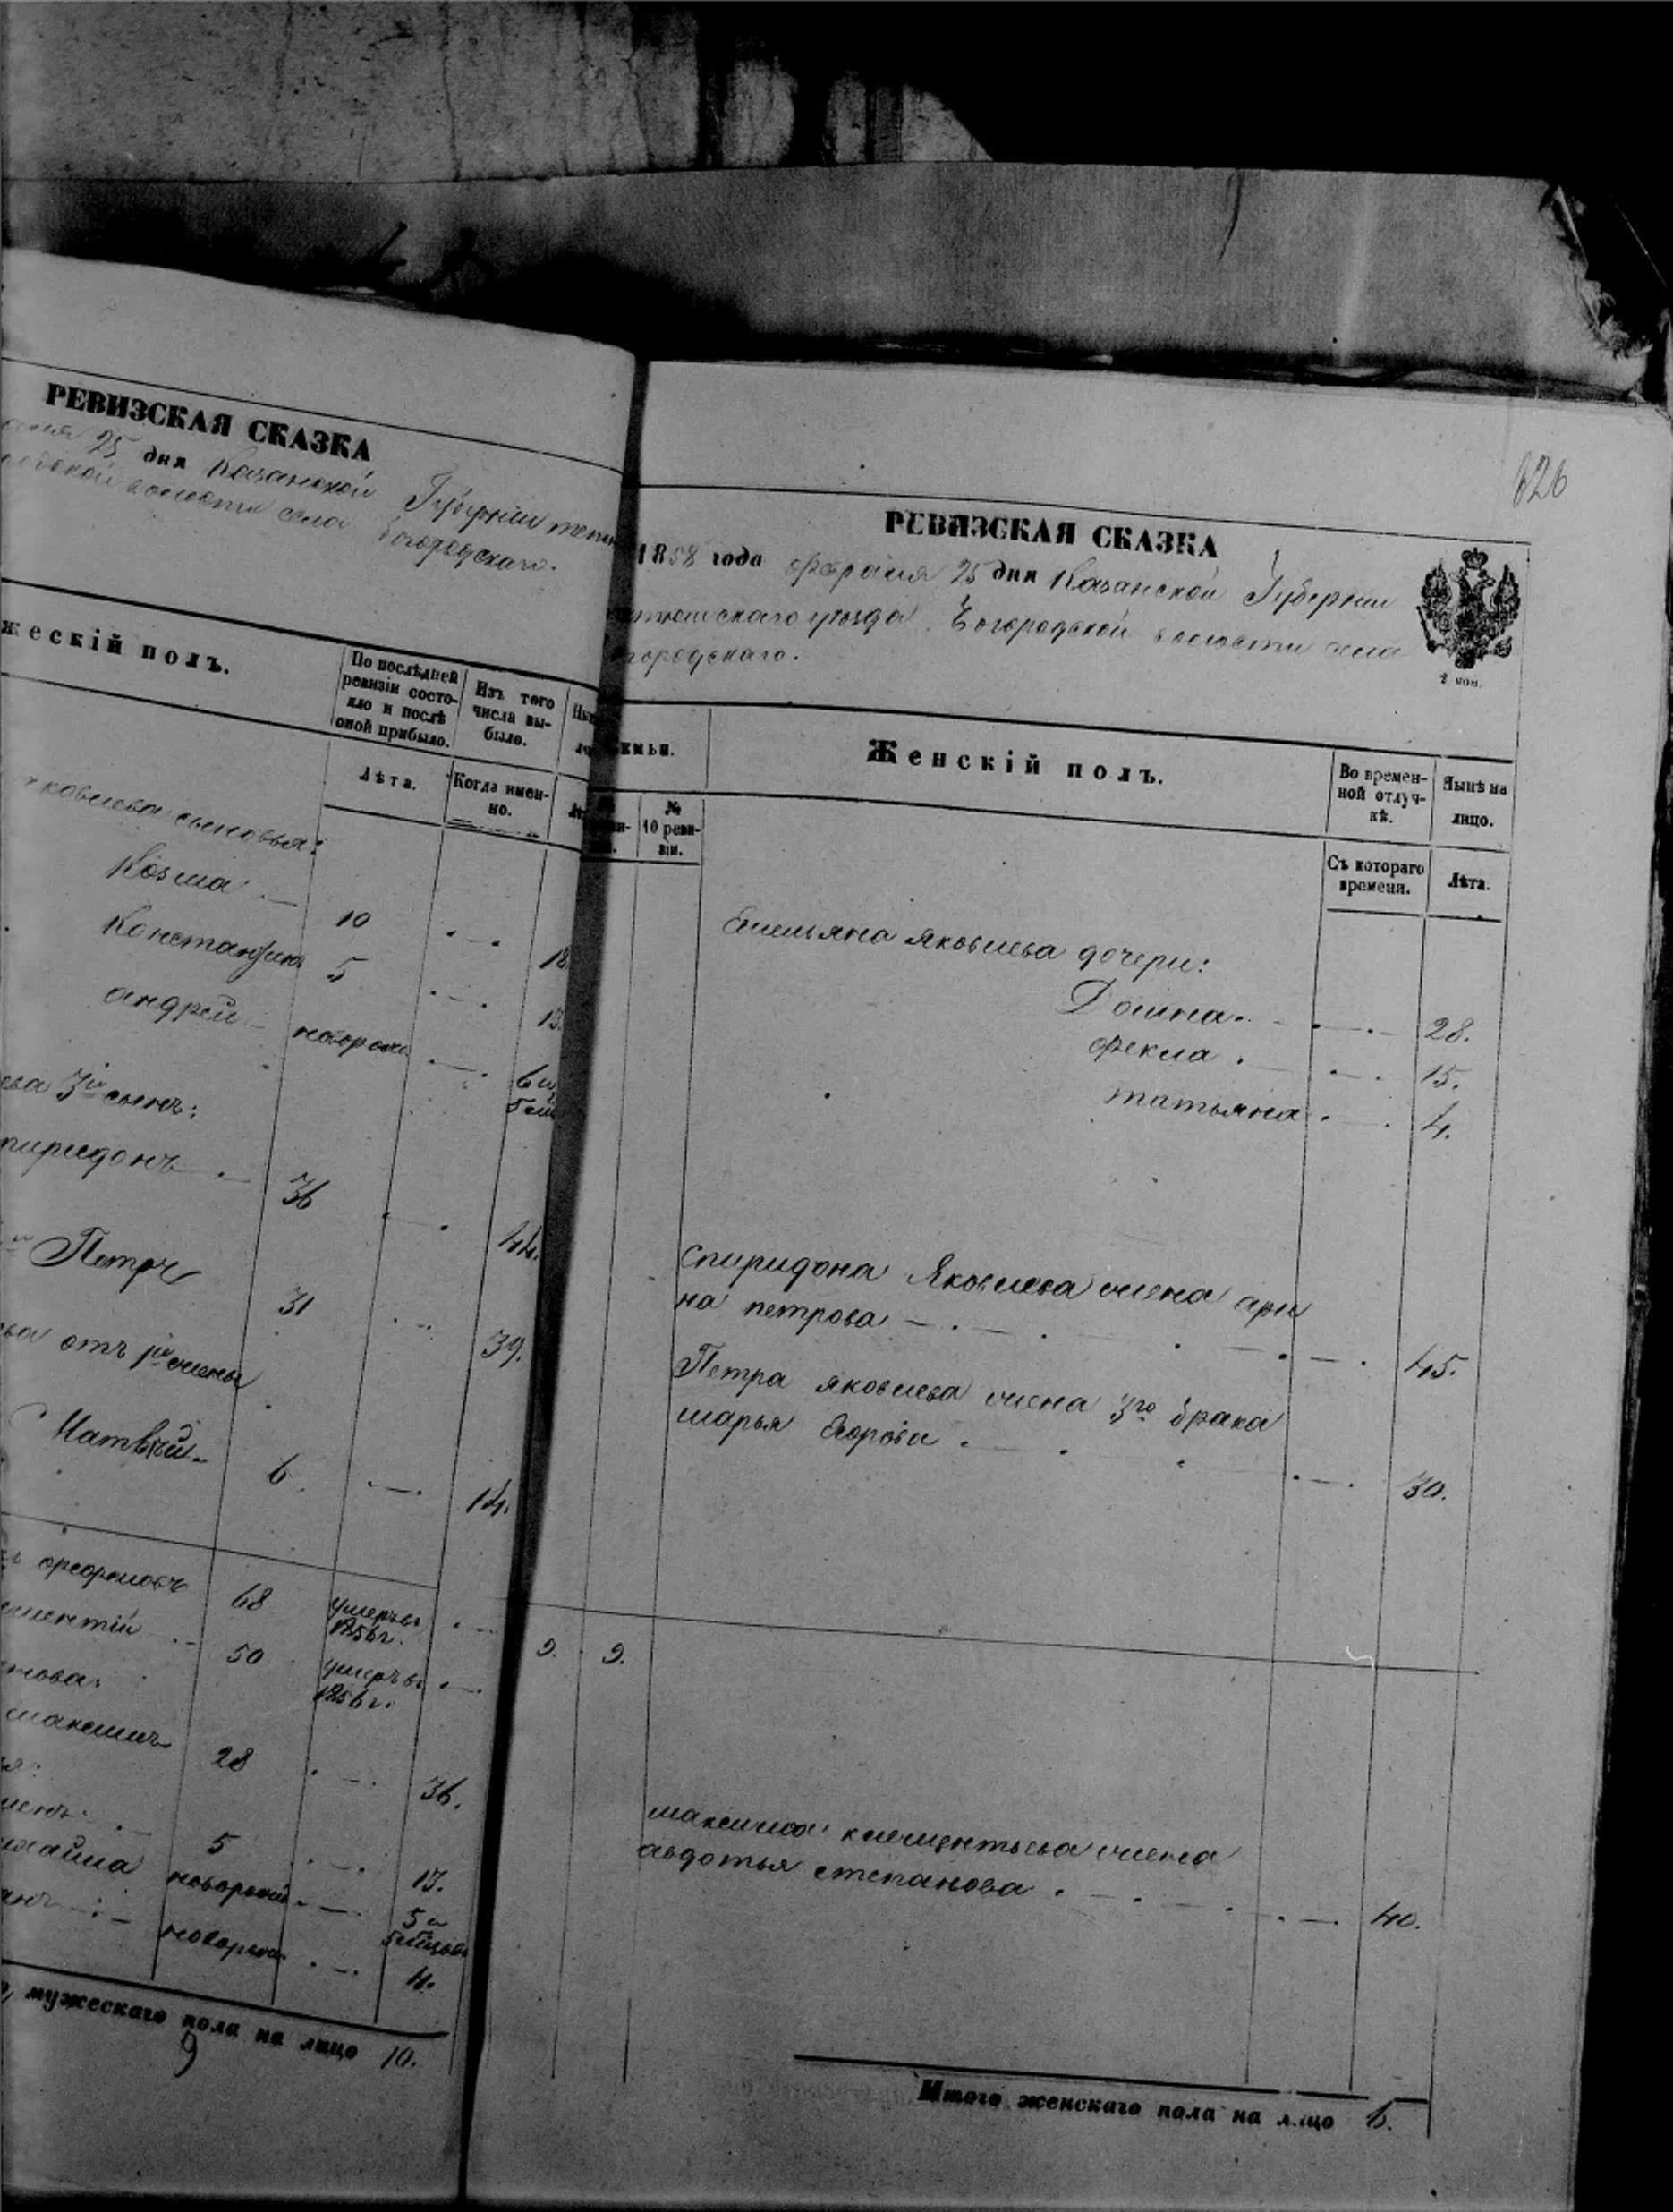 РЕВИЗСКАЯ СКАЗКА
25 дня Казанской Губернии
волости села Богородскаго.
жескій полъ.
По послѣдней
ревизіи состо-
яло и послѣ
оной прибыло.
Изъ того
числа вы-
было.
Лѣта.
Когда имен-
но.
яковлева сыновья:
Козма 10 18
Константинъ 5 13.
андрей новорож. 6 и
ева 3й сынъ:
пиридонъ 36 44.
Петръ 31 39.
ва отъ 1й жены
Матвѣй 6. 14.
68 умеръ въ
1856 г.
ментій 50 умеръ въ
1856 г.
нова:
максимъ 28 36.
5 13.
новорож. 5 и
новорож. 4.
мужескаго пола на лицо 10.
9
626
РЕВИЗСКАЯ СКАЗКА
1858 года февраля 25 дня Казанской Губернии
тюшскаго уѣзда Богородской волости села
городскаго.
2 коп.
емьи.
Женскій полъ.
Во времен-
ной отлуч-
кѣ.
Нынѣ на
лицо.
№
10 реви-
зіи.
Съ котораго
времени.
Лѣта.
Емельяна яковлева дочери:
Домна 28.
фекла 15.
татьяна 4.
Спиридона Яковлева жена ари
на петрова 45.
Петра яковлева жена 3го брака
марья Егорова 30.
9. 9.
максима клементьева жена
авдотья степанова 40.
Итого женскаго пола на лицо 6.